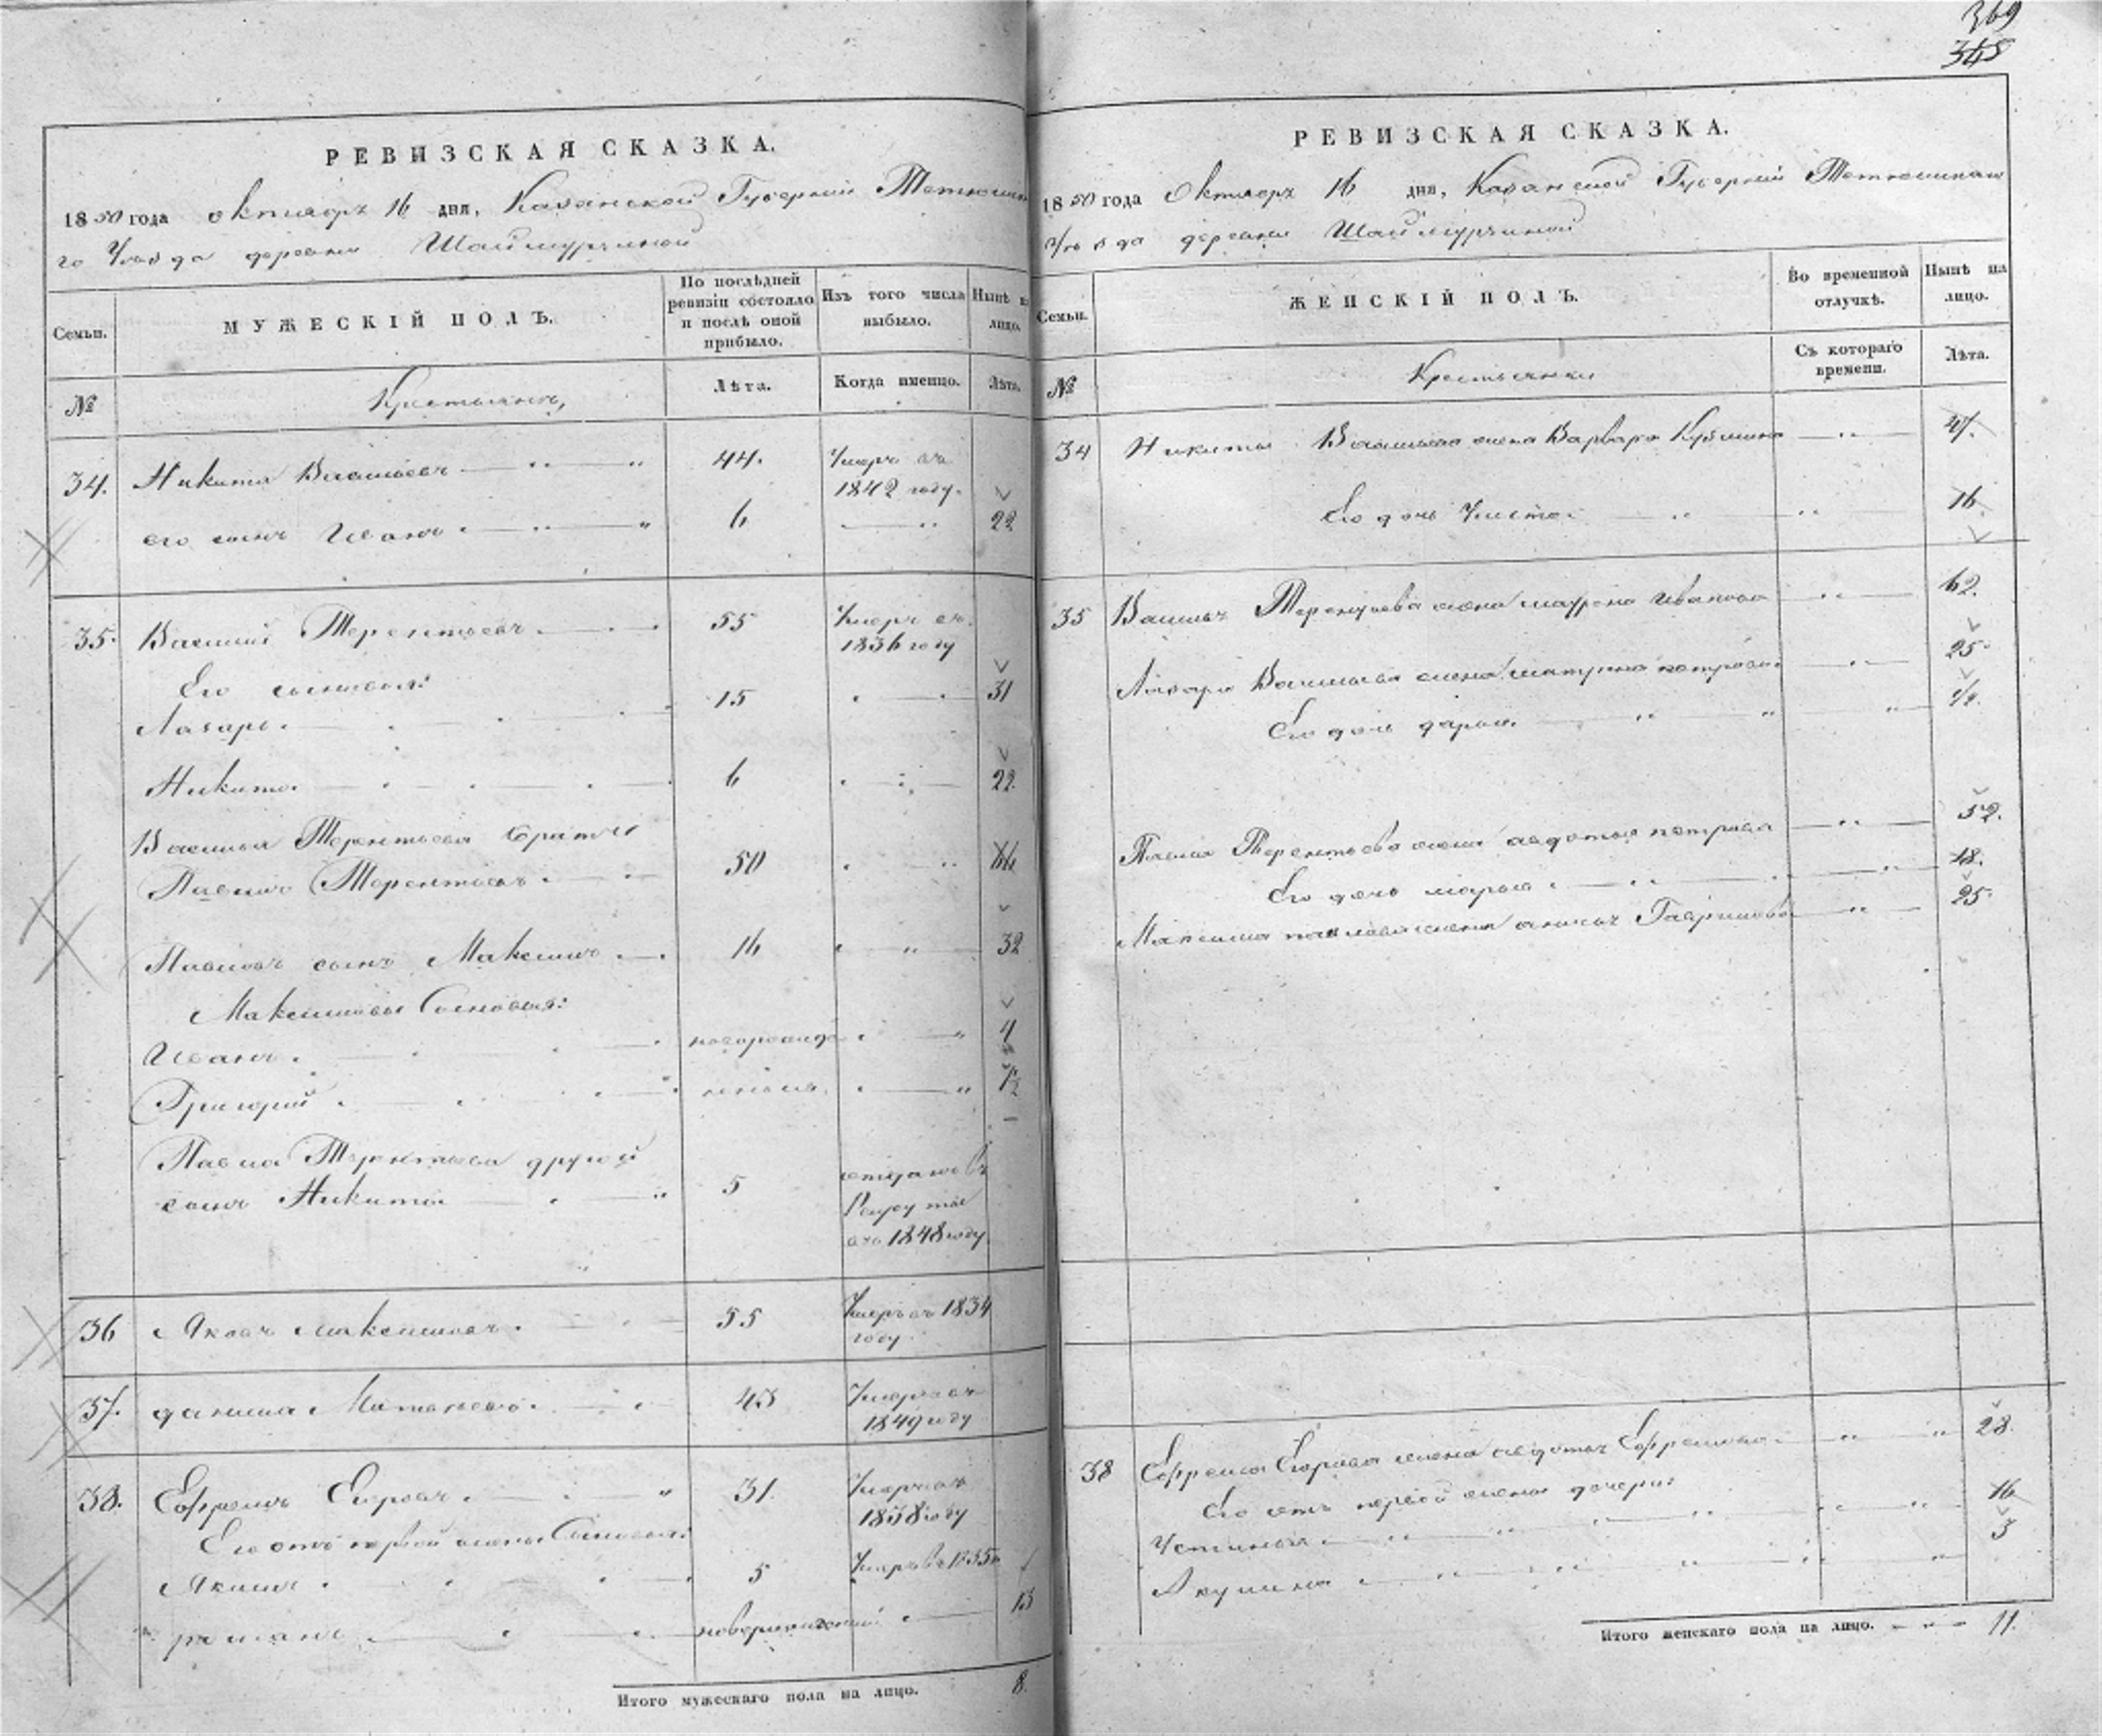 369
345
РЕВИЗСКАЯ СКАЗКА.
1850 года октября 16 дня, Казанской Губерніи Тетюшска
го Уѣзда деревни Шаймурзиной
Семьи.
МУЖЕСКІЙ ПОЛЪ.
По послѣдней ревизіи состояло и послѣ оной прибыло.
Изъ того числа выбыло.
Нынѣ на лицо.
№
Крестьянъ,
Лѣта.
Когда именно.
Лѣта.
34. Никита Васильевъ 44. Умеръ въ
1842 году.
его сынъ Иванъ 6 22
35. Василій Терентьевъ 55 Умеръ въ
1836 году
Его сыновья:
Лазарь 15 31
Никита 6 22
Василья Терентьева братъ
Павелъ Терентьевъ 50 66
Павловъ сынъ Максимъ 16 32
Максимовы Сыновья:
Иванъ новорожд 4
Григорій 1/2
Павла Терентьева другой
сынъ Никита 5 отданъ въ
Рекруты
въ 1848 году
36 Яковъ Максимовъ 55 Умеръ въ 1834
году
37. данила Матвеевъ 43 Умеръ въ
1849 году
38. Ефремъ Егоровъ 31 Умеръ въ
1838 году
Его отъ первой жены Сыновья:
Якимъ 5 Умеръ въ 1835
романъ новорожденный 13
Итого мужескаго пола на лицо. 8.
РЕВИЗСКАЯ СКАЗКА.
1850 года Октября 16 дня, Казанской Губерніи Тетюшскаго
Уѣзда деревни Шаймурзиной
Семьи.
ЖЕНСКІЙ ПОЛЪ.
Во временной отлучкѣ.
Нынѣ на лицо.
№
Крестьянки
Съ котораго времени.
Лѣта.
34 Никиты Васильева жена Варвара Кузмина 47.
Его дочь 16
35 Василья Терентьева жена Матрена Иванова 62.
Лазаря Васильева жена матрена петрова 25
Его дочь дарья 1/2.
Павла Терентьева жена авдотья петрова 52.
Его дочь марья 18.
Максима павлова жена Гаврилова 25.
38 Ефрема Егорова жена авдотья Ефремова 28.
Его отъ первой жены дочери:
Устинья 16
Акулина 3
Итого женскаго пола на лицо. 11.